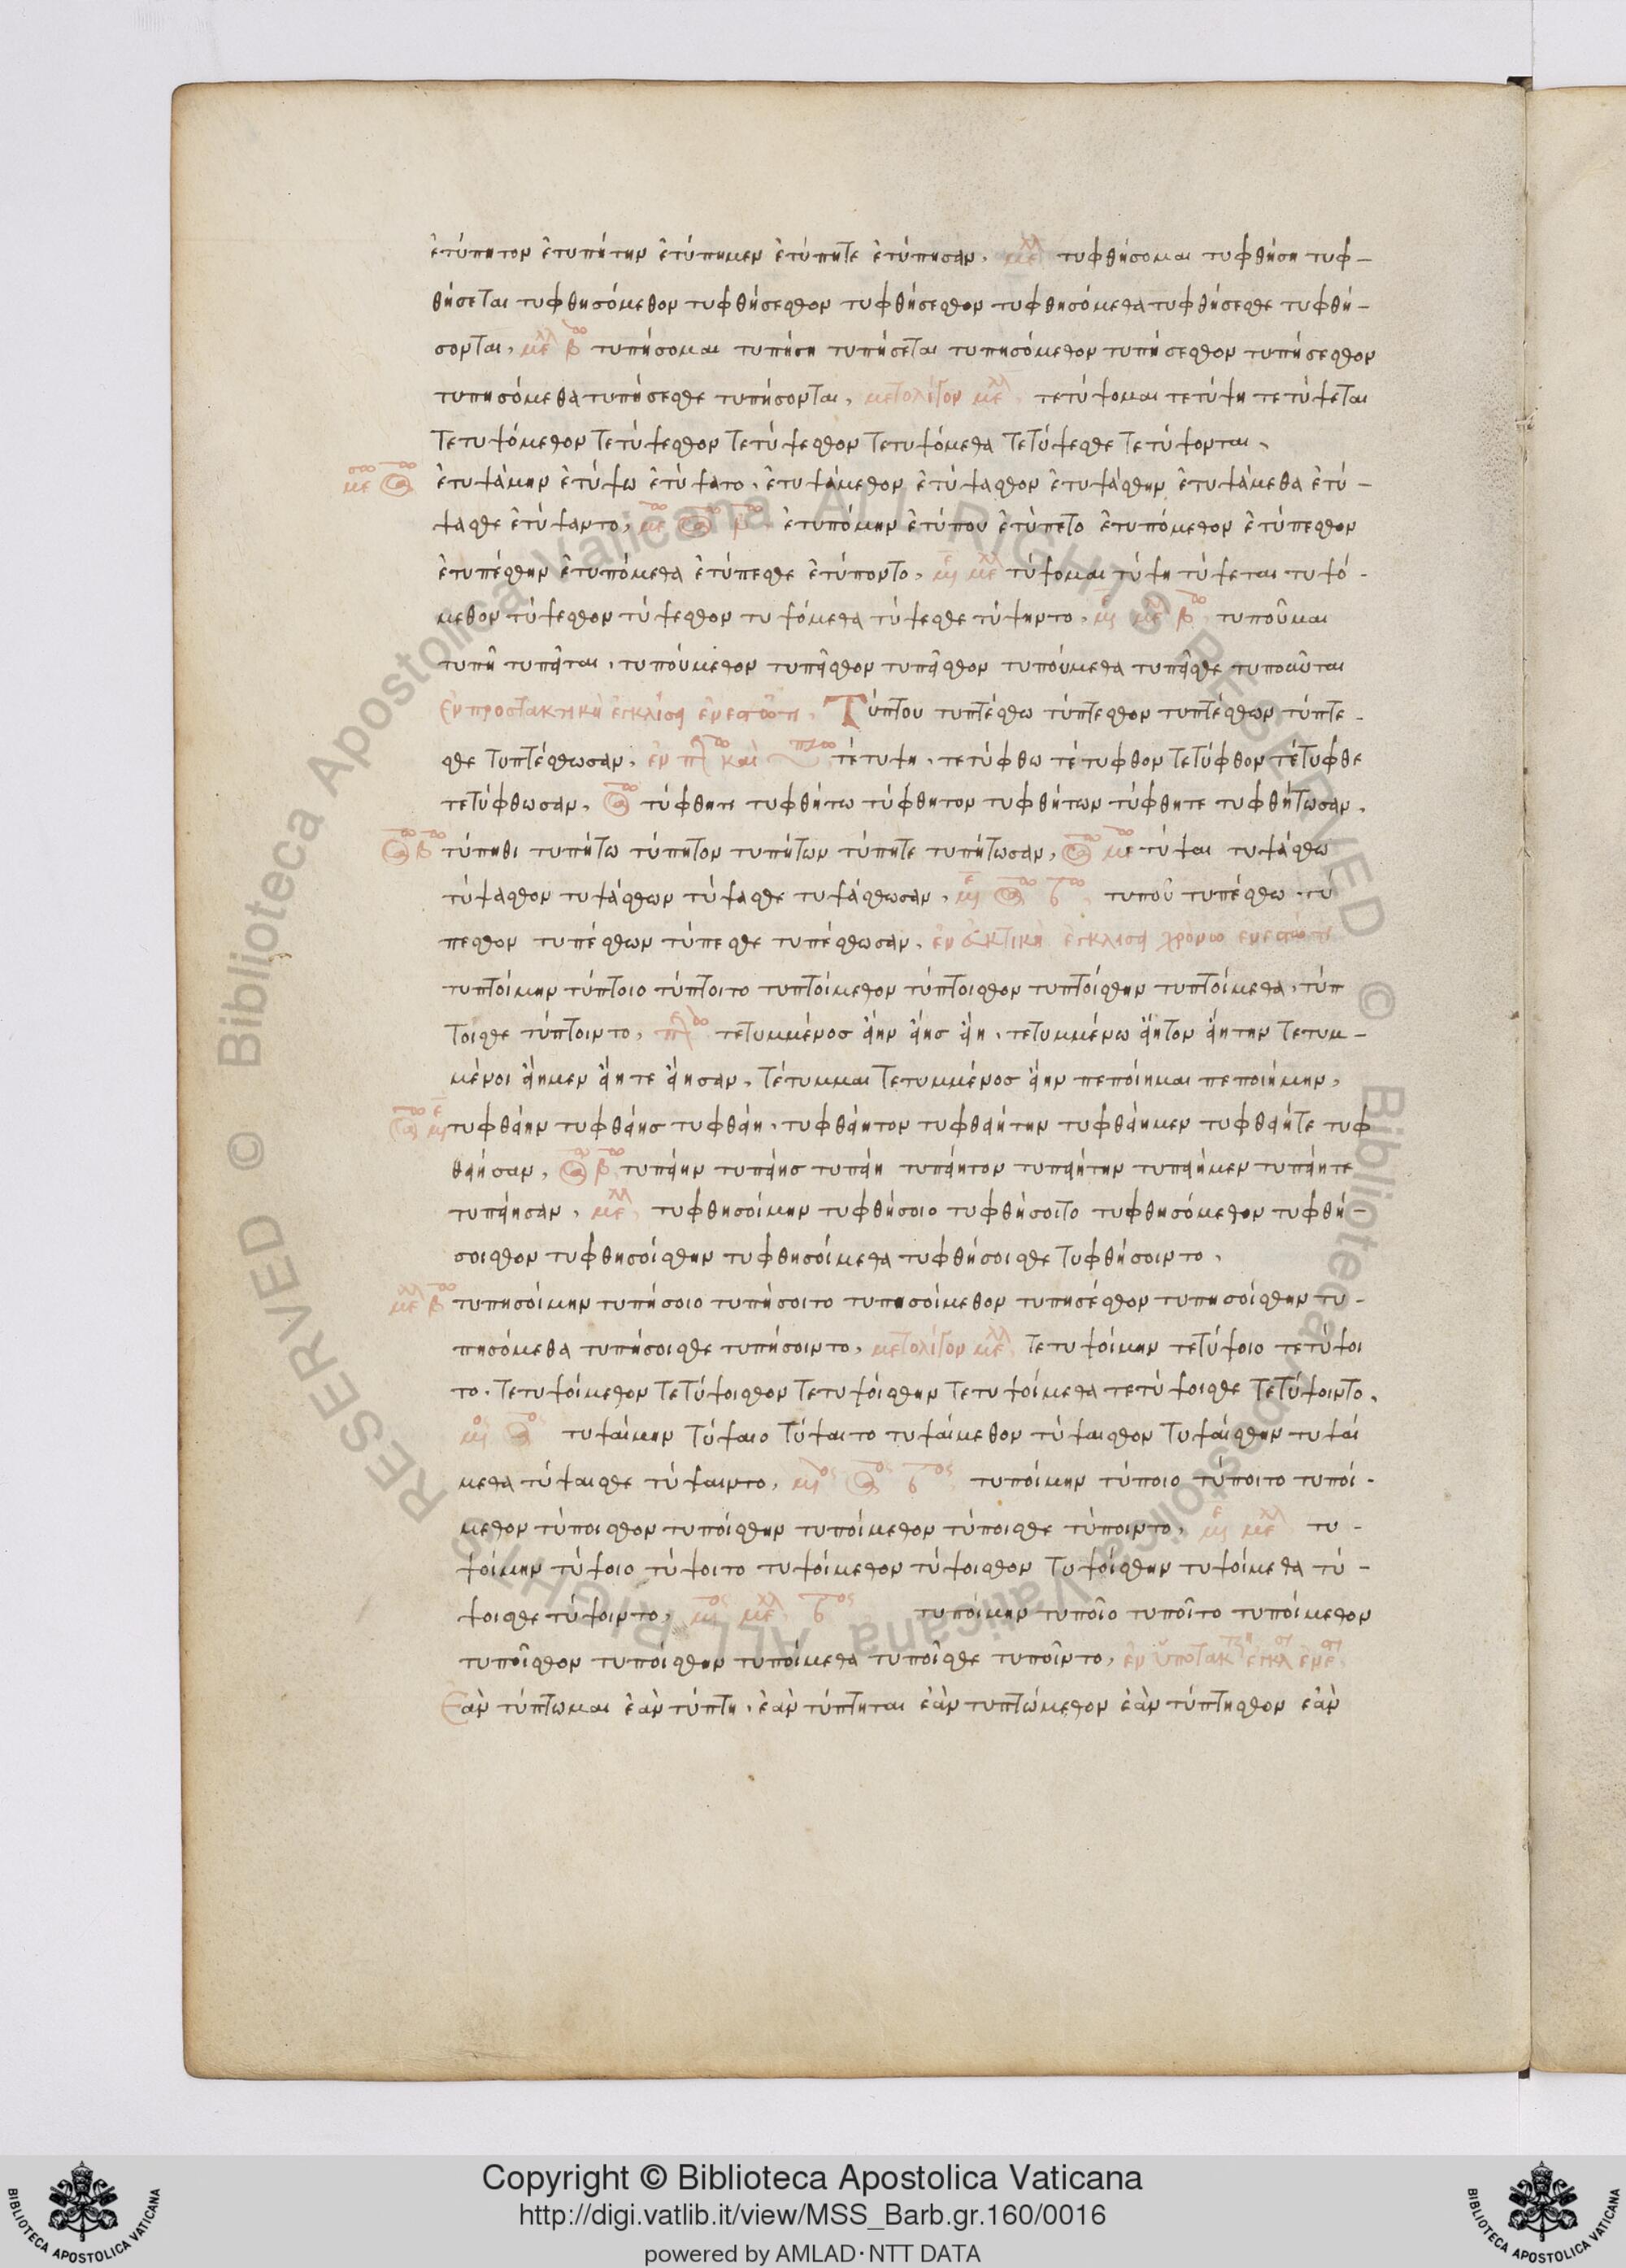 ἐτύπητον ἐτυπήτην ἐτύπημεν ἐτύπητε ἐτύπησαν, με λλ τυφθήσομαι τυφθήση τυφ-
θήσεται τυφθησόμεθον τυφθήσεσθον τυφθήσεσθον τυφθησόμεθα τυφθήσεσθε τυφθή-
σονται, με λλ β τυπήσομαι τυπήση τυπήσεται τυπησόμεθον τυπήσεσθον τυπήσεσθον
τυπησόμεθα τυπήσεσθε τυπήσονται, μετολίγον με λλ τετύψομαι τετύψη τετύψεται
τετυψόμεθον τετύψεσθον τετύψεσθον τετυψόμεθα τετύψεσθε τετύψονται,
ἐτυψάμην ἐτύψω ἐτύψατο, ἐτυψάμεθον ἐτύψασθον ἐτυψάσθην ἐτυψάμεθα ἐτύ-
ψασθε ἐτύψαντο, ἐτυπόμην ἐτύπου ἐτύπετο ἐτυπόμεθον ἐτύπεσθον
ἐτυπέσθην ἐτυπόμεθα ἐτύπεσθε ἐτύποντο, τύψομαι τύψη τύψεται τυψό-
μεθον τύψεσθον τύψεσθον τυψόμεθα τύψεσθε τύψηντο, τυποῦμαι
τυπῆ τυπεῖται, τυπούμεθον τυπεῖσθον τυπεῖσθον τυπούμεθα τυπεῖσθε τυποαῦται
ἐν προστακτικῆ ἐγκλίσει ἐνεστῶτι, Τύπτου τυπτέσθω τύπτεσθον τυπτέσθων τύπτε-
σθε τυπτέσθωσαν, ἐν καὶ τέτυψη, τετύφθω τέτυφθον τετύφθον τέτυφθε
τετύφθωσαν, τύφθητι τυφθήτω τύφθητον τυφθήτων τύφθητε τυφθήτωσαν,
τύπηθι τυπήτω τύπητον τυπήτων τύπητε τυπήτωσαν, τύψαι τυψάσθω
τύψασθον τυψάσθων τύψασθε τυψάσθωσαν, τυποῦ τυπέσθω τύ
πεσθον τυπέσθων τύπεσθε τυπέσθωσαν, ἐν εὐκτικῆ ἐγκλίσει χρόνω ἐνεστῶτι
τυπτοίμην τύπτοιο τύπτοιτο τυπτοίμεθον τύπτοισθον τυπτοίσθην τυπτοίμεθα, τύπ
τοισθε τύπτοιντο, τετυμμένοσ εἴην εἴησ εἴη, τετυμμένω εἴητον εἰήτην τετυμ-
μένοι εἴημεν εἴητε εἴησαν, τέτυμμαι τετυμμένοσ εἴην πεποίημαι πεποιήμην,
τυφθείην τυφθείησ τυφθείη, τυφθείητον τυφθειήτην τυφθείημεν τυφθείητε τυφ
θείησαν, τυπείην τυπείησ τυπείη τυπείητον τυπειήτην τυπείημεν τυπείητε
τυπείησαν, με λλ τυφθησοίμην τυφθήσοιο τυφθήσοιτο τυφθησόμεθον τυφθή-
σοισθον τυφθησοίσθην τυφθησοίμεθα τυφθήσοισθε τυφθήσοιντο,
τυπησοίμην τυπήσοιο τυπήσοιτο τυπησοίμεθον τυπησέσθον τυπησοίσθην τυ-
πησόμεθα τυπήσοισθε τυπήσοιντο, μετολίγον με λλ τετυψοίμην τετύψοιο τετύψοι
το, τετυψοίμεθον τετύψοισθον τετυψοίσθην τετυψοίμεθα τετύψοισθε τετύψοιντο,
τυψαίμην τύψαιο τύψαιτο τυψαίμεθον τύψαισθον τυψαίσθην τυψαί
μεθα τύψαισθε τύψαιντο, τυποίμην τύποιο τύποιτο τυποί-
μεθον τύποισθον τυποίσθην τυποίμεθον τύποισθε τύποιντο, τυ-
ψοίμην τύψοιο τύψοιτο τυψοίμεθον τύψοισθον τυψοίσθην τυψοίμεθα τύ-
ψοισθε τύψοιντο, τυποίμην τυποῖο τυποῖτο τυποίμεθον
τυποῖσθον τυποίσθην τυποίμεθα τυποῖσθε τυποῖντο,
Ἐὰν τύπτωμαι ἐὰν τύπτη, ἐὰν τύπτηται ἐὰν τυπτώμεθον ἐὰν τύπτησθον ἐὰν
Copyright © Biblioteca Apostolica Vaticana
http://digi.vatlib.it/view/MSS_Barb.gr.160/0016
powered by AMLAD·NTT DATA